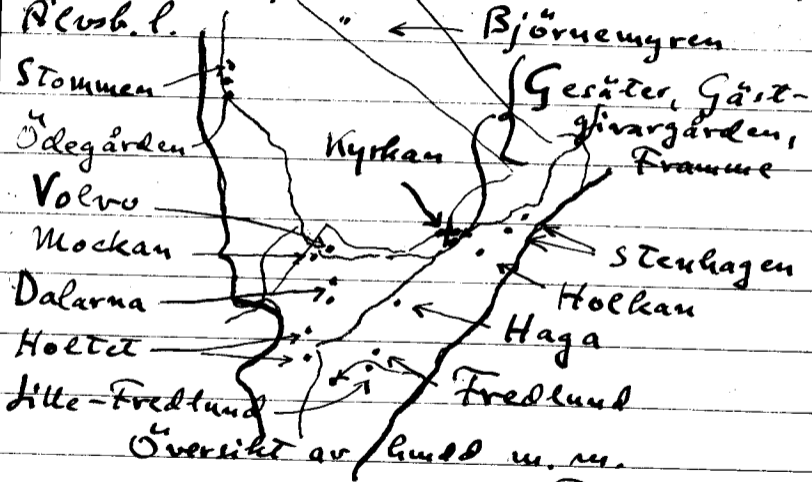 Älvsb. l.
" ← Björnemyren
Stommen
Gesäter, Gäst-
givargården,
Framme
Ödegården
Kyrkan
Volvo
Mockan
Stenhagen
Dalarna
Holkan
Haga
Holtet
Lille-Fredlund
Fredlund
Översikt av m. m.